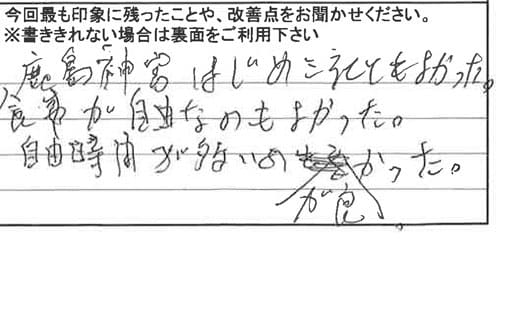 今回最も印象に残ったことや、改善点をお聞かせください。
※書ききれない場合は裏面をご利用下さい
鹿島神宮はじめ三社とてもよかった。
食事が自由なのもよかった。
自由時間が多いのが良かった。